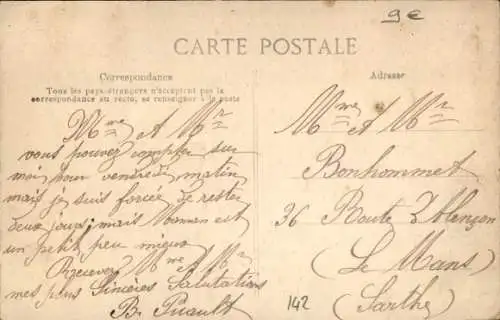 9€
CARTE POSTALE
Correspondance
Tous les pays étrangers n'acceptent pas la
correspondance au recto, se renseigner à la poste
Mme & Mr
vous pouvez compter sur
moi pour vendredi matin
mais je suis forcée de rester
deux jours; mais Maman est
un petit peu mieux
Recevez Mme & Mr
mes plus Sincères Salutations
B. Puault
Adresse
Mme & Mr
Bonhommet
36 Route d'Alençon
Le Mans
(Sarthe)
142